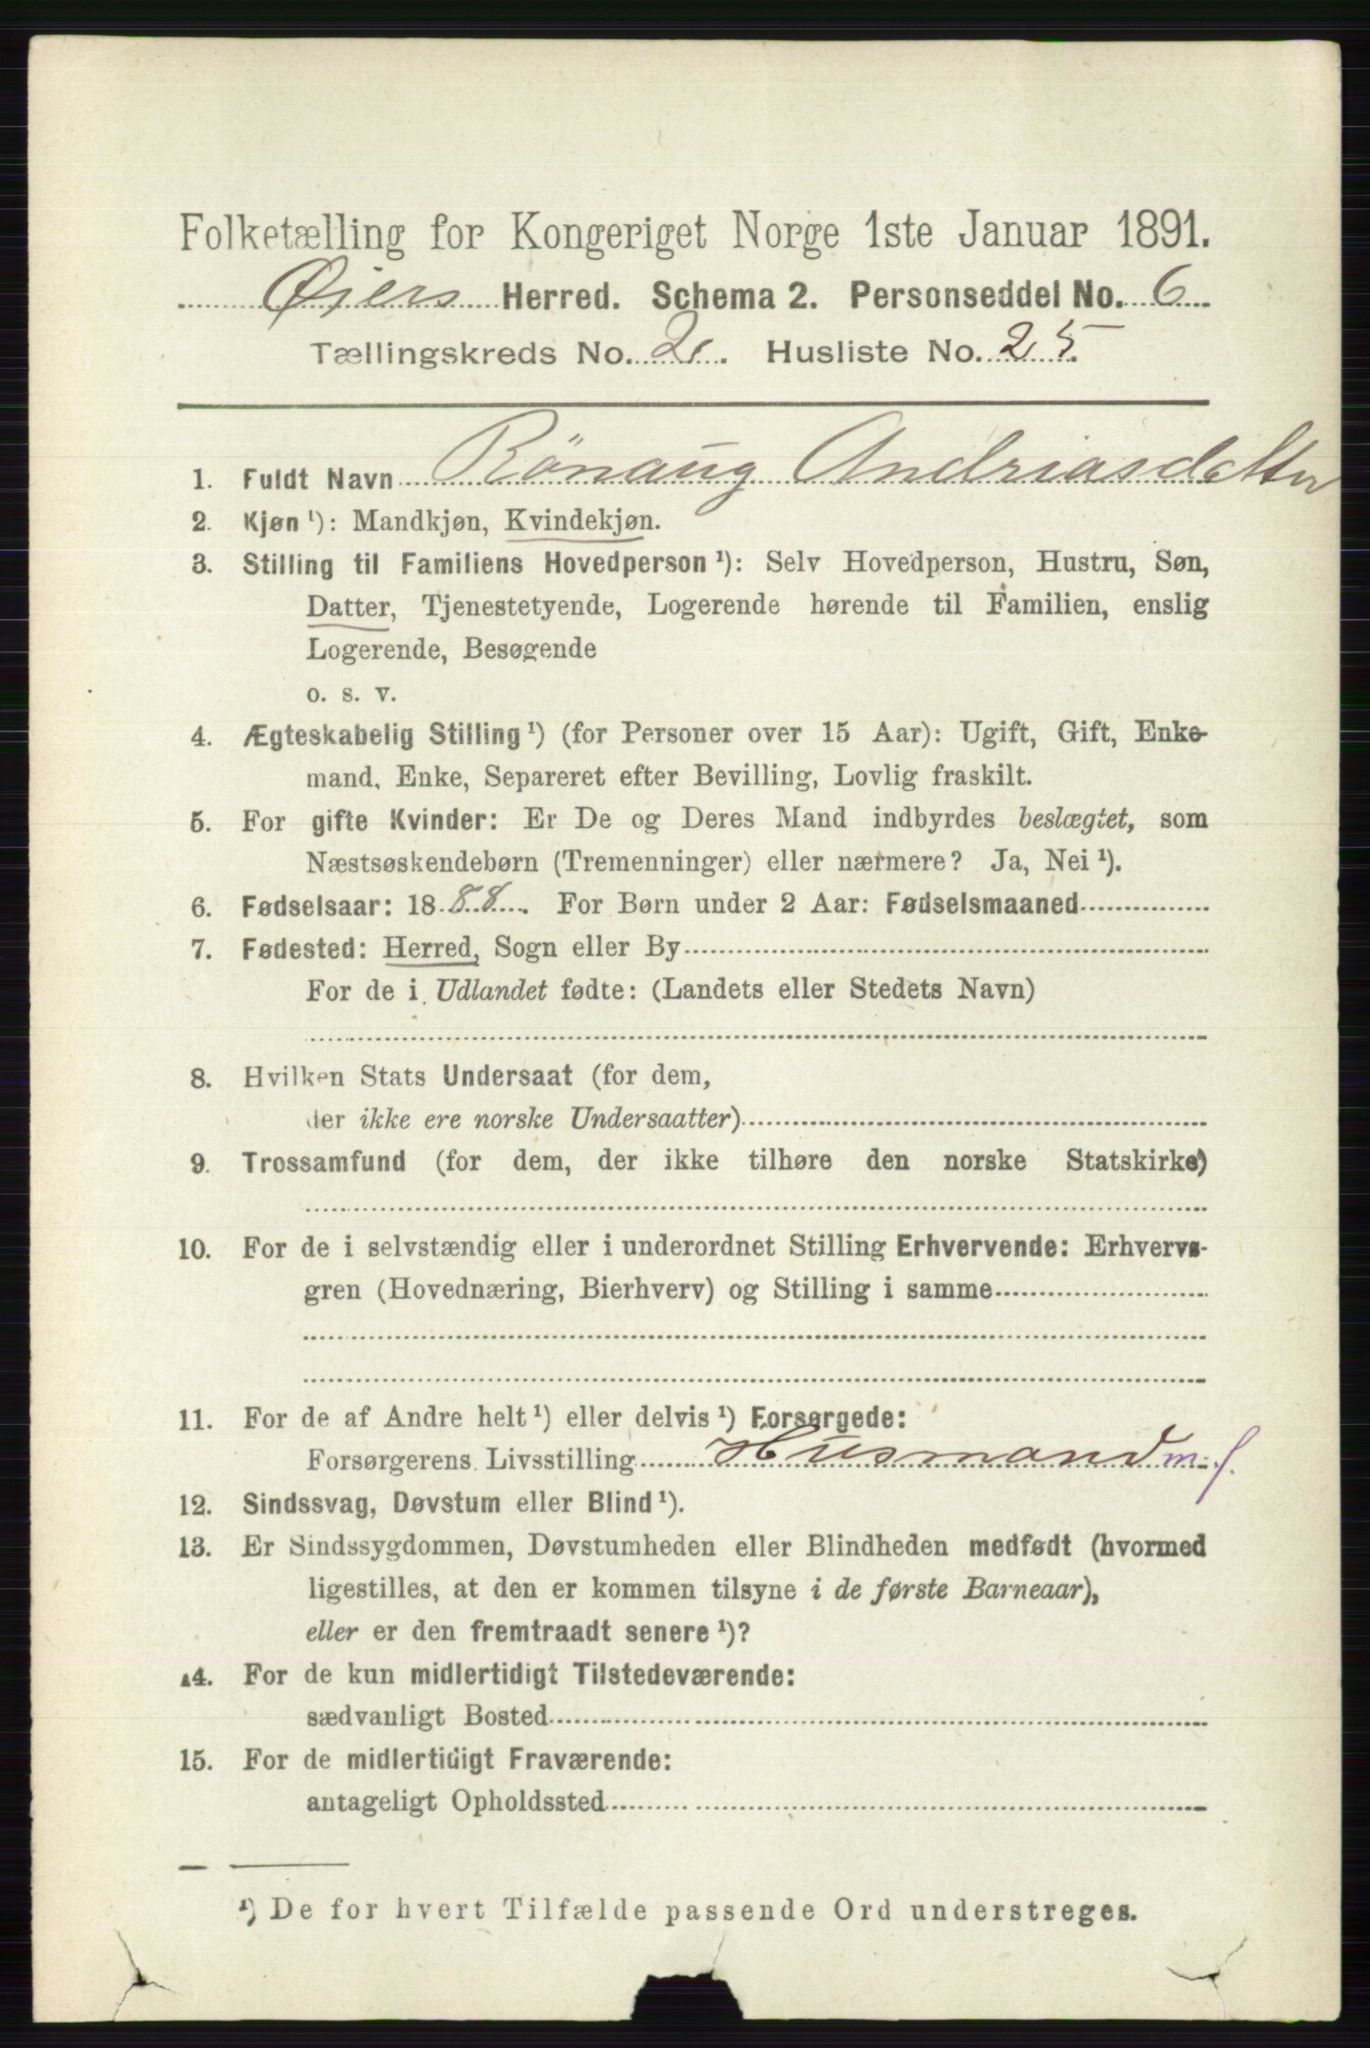 Folketælling for Kongeriget Norge 1ste Januar 1891.
Øiers Herred. Schema 2. Personseddel No. 6
Tællingskreds No. 2. Husliste No. 25.
1. Fuldt Navn Rönaug Andriasdatter
2. Kjøn ¹): Mandkjøn, Kvindekjøn.
3. Stilling til Familiens Hovedperson ¹): Selv Hovedperson, Hustru, Søn,
Datter, Tjenestetyende, Logerende hørende til Familien, enslig
Logerende, Besøgende
o. s. v.
4. Ægteskabelig Stilling ¹) (for Personer over 15 Aar): Ugift, Gift, Enke-
mand, Enke, Separeret efter Bevilling, Lovlig fraskilt.
5. For gifte Kvinder: Er De og Deres Mand indbyrdes beslægtet, som
Næstsøskendebørn (Tremenninger) eller nærmere? Ja, Nei ¹).
6. Fødselsaar: 1888. For Børn under 2 Aar: Fødselsmaaned
7. Fødested: Herred, Sogn eller By
For de i Udlandet fødte: (Landets eller Stedets Navn)
8. Hvilken Stats Undersaat (for dem,
der ikke ere norske Undersaatter)
9. Trossamfund (for dem, der ikke tilhøre den norske Statskirke)
10. For de i selvstændig eller i underordnet Stilling Erhvervende: Erhvervs-
gren (Hovednæring, Bierhverv) og Stilling i samme
11. For de af Andre helt ¹) eller delvis ¹) Forsørgede:
Forsørgerens Livsstilling Husmand m. f.
12. Sindssvag, Døvstum eller Blind ¹).
13. Er Sindssygdommen, Døvstumheden eller Blindheden medfødt (hvormed
ligestilles, at den er kommen tilsyne i de første Barneaar),
eller er den fremtraadt senere ¹)?
14. For de kun midlertidigt Tilstedeværende:
sædvanligt Bosted
15. For de midlertidigt Fraværende:
antageligt Opholdssted
¹) De for hvert Tilfælde passende Ord understreges.